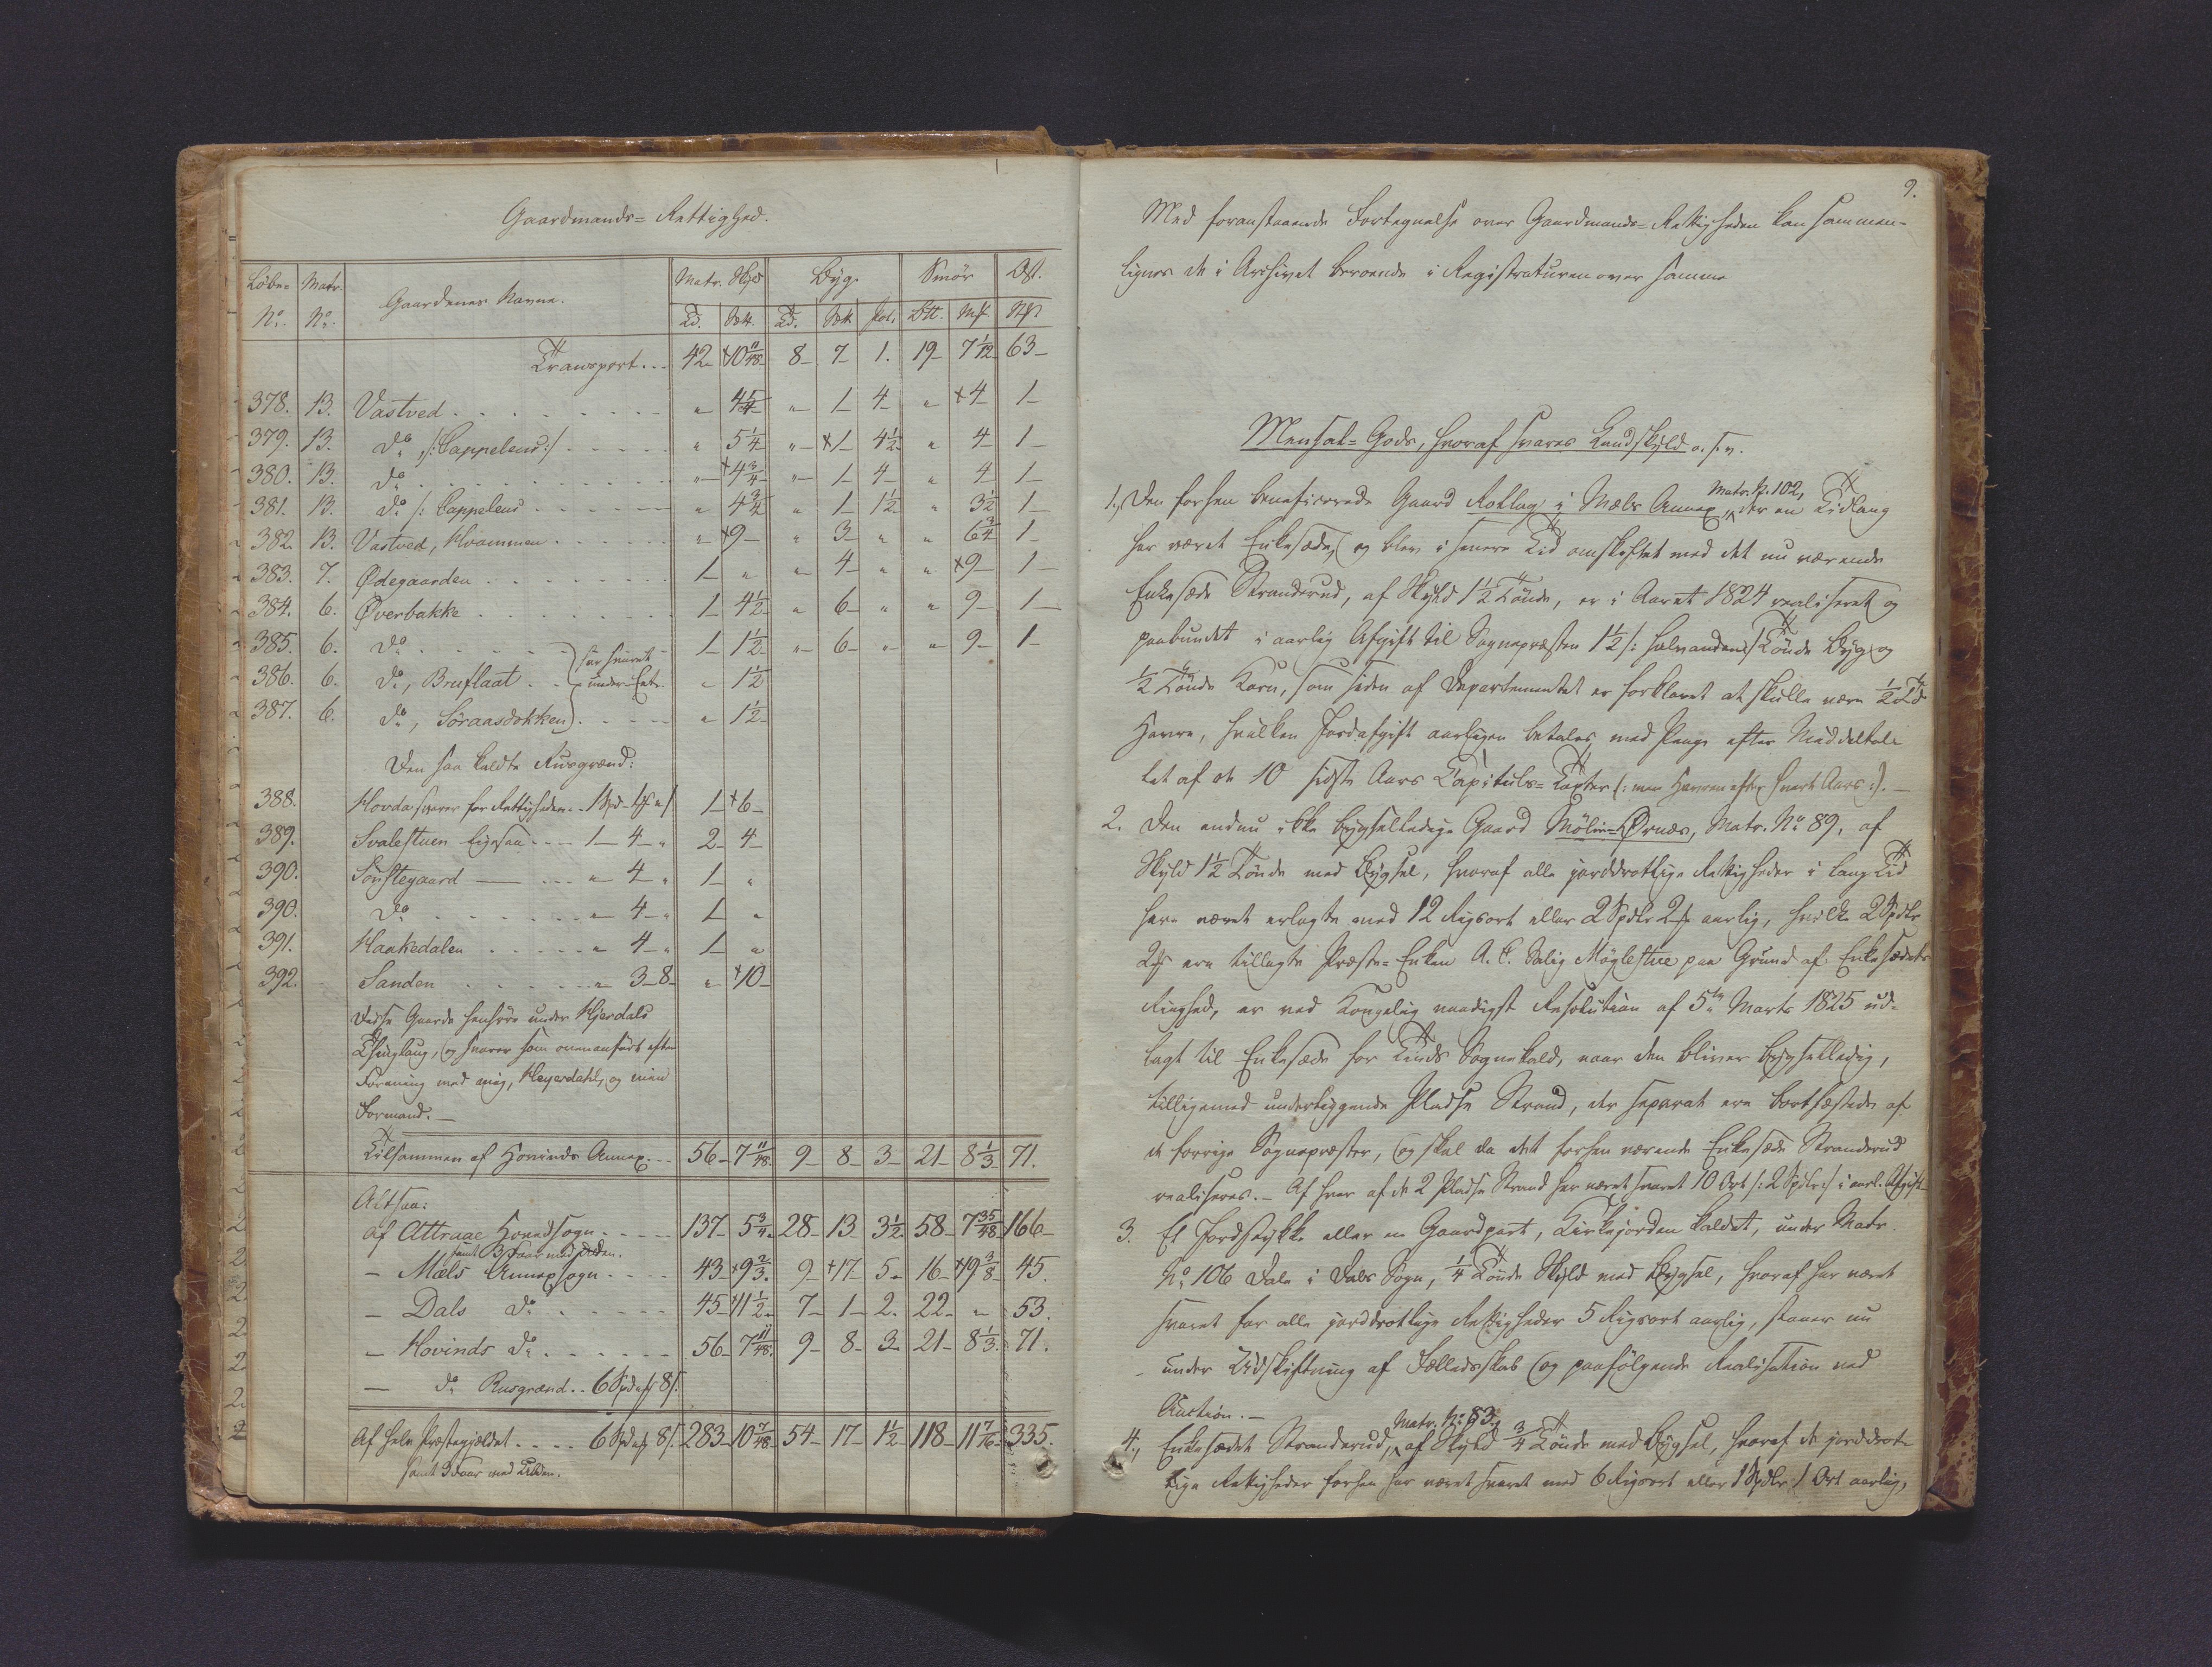 Gaardmands-Rettighed.
Løbe- Matr. Gaardenes Navne. Matr. Skyld Byg. Smør Ost.
No. No. Td. Sett. Td. Sett Pot. Btt. Mk. Stk.
Transport... 42- †10 11/48 8- 7- 1. 19- 7 1/12 63-
378. 13. Vastved " 4 1/4 " 1- 4- " †4- 1-
379. 13. Do /:Cappelens:/ " 5 1/4 " †1- 4 1/2 " 4- 1-
380. 13. Do " †4 3/4 " 1- 4- " 4- 1-
381. 13. Do /: Cappelens " 4 3/4 " 1- 1 1/2 " 3 1/2 1-
382. 13. Vastved, Hvammen " †9- " 3- " " 6 3/4 1-
383. 7. Ødegaarden 1- " " 4- " " †9- 1-
384. 6. Øverbakke 1- 4 1/2 " 6- " " 9- 1-
385. 6. Do 1- 1 1/2 " 6- " " 9- 1-
386. 6. Do, Brusflaat " 1 1/2
387. 6. Do, Søraasdokken " 1 1/2
Den saa kaldte Rusgrænd:
388. Hovda svarer for Rettigheden 1 Spd 1- †6-
389. Svalestuen ligesaa 1- 4- " 2- 4-
390. Søustegaard " 4- " 1- "
390. Do " 4- " 1- "
391. Haakedalen " 4- " 1- "
392. Sanden " 3-8- " †10-
Disse Gaarde henhøre under Hjerdals
Thinglaug, og svarer som ovenanført efter
Forening med mig, Heyerdahl, og min
Formand.-
Tilsammen af Hovinds Annex 56- 7 11/48 9- 8- 3- 21- 8 1/3 71.
Altsaa:
Af Attraae Hovedsogn 137- 5 3/4 28- 13- 3 1/2 58- 7 35/48 166-
samt 3 Faar med Ulden.
- Mæls Annexsogn 43- †9 2/3 9- †17- 5- 16- †19 3/8 45.
- Dals Do 45- †11 1/2 7- 1- 2. 22- " 53.
- Hovinds Do 56- 7 11/48 9- 8- 3- 21- 8 1/3 71.
- Do Rusgrænd.. 6 Spd 8 s.
Af hele Præstegjældet 6 Spd 8 s. 283- 10 7/48 54- 17- 1 1/2 118- 11 7/16 335.
samt 3 Faar med Ulden.
9.
Med foranstaaende Fortegnelse over Gaardmands-Rettigheden kan sammen-
lignes de i Archivet beroende i Registraturen over samme
Mensal-Gods, hvoraf svares Landskyld o.s.v.
1., Den forhen beneficerede Gaard Rollag i Mæls Annex, Matr. N. 102, der en Tidlang
har været Enkesæde, og blev i senere Tid omskiftet med det nu værende
Enkesæde Stranderud, af Skyld 1 1/2 Tønde, er i Aaret 1824 realiseret og
paabundet i aarlig Afgift til Sognepræsten 1 1/2 /: halvanden :/ Tønde Byg og
1/2 Tønde Korn, som siden af Departementet er forklaret at skulle være 1/2 Td
Havre, hvilken Jordafgift aarligen betales med Penge efter Middeltal-
let af de 10 sidste Aars Capitels-Taxter (: men Havren efter hvert Aars :).-
2. Den endnu ikke bygselledige Gaard Mølie-Ørnæs, Matr. No 89, af
Skyld 1 1/2 Tønde med Bygsel, hvoraf alle jorddrotlige Rettigheder i lang Tid
have været erlagte med 12 Rigsort eller 2 Spdlr 2 aarlig, hvilke 2 Spdlr
2 ere tillagte Præste-Enken A. C. Salig Møglestue paa Grund af Enkesædets
Ringhed, er ved Kongelig naadigst Resolution af 5te Marts 1825 ud-
lagt til Enkesæde for Tinds Sognekald, naar den bliver bygselledig,
tilligemed underliggende Pladse Strand, der separat ere bortfæstede af
de forrige Sognepræster, og skal da det forhen værende Enkesæde Stranderud
realiseres.- Af hver af de 2 Pladse Strand har været svaret 10 Ort /: 2 Spdlr :/ i aarl. Afgift
3. Et Jordstykke eller en Gaardpart, Kirkejorden kaldet, under Matr.
No 106 Dale i Dals Sogn, 1/4 Tønde Skyld med Bygsel, hvoraf har været
svaret for alle jorddrotlige Rettigheder 5 Rigsort aarlig, staaer nu
under Udskiftning af Fælledsskab og paafølgende Realisation ved
Auction.-
4., Enkesædet Stranderud, Matr. No 83, af Skyld 3/4 Tønde med Bygsel, hvoraf de jorddrot-
lige Rettigheder forhen har været svaret med 6 Rigsort eller 1 Spdlr 1 Ort aarlig,